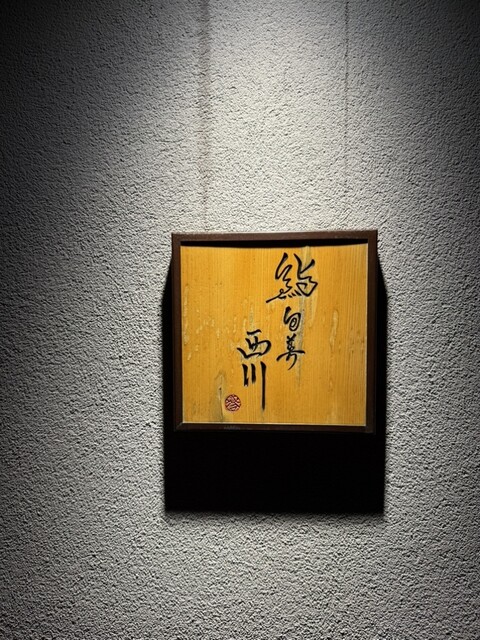 鮨 旬菜
西川